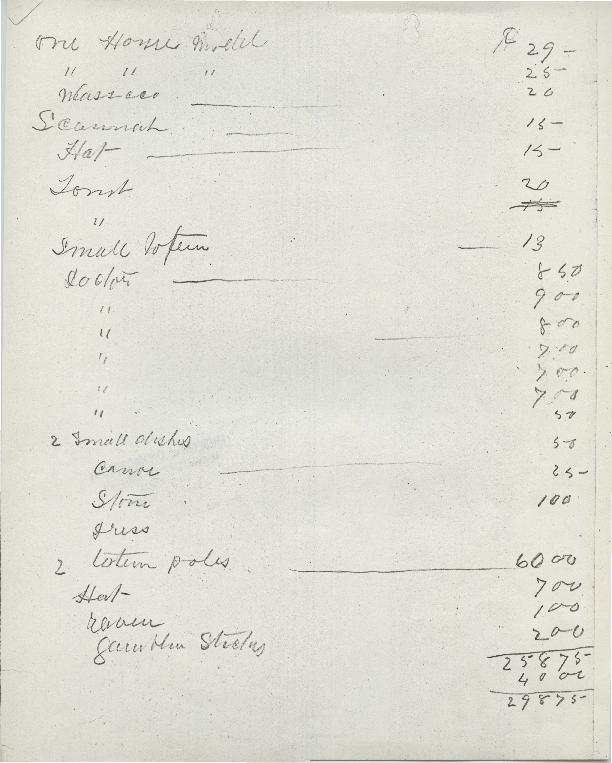 One House Model $ 29 -
" " " 25 -
Masseco 20
Scannah 15 -
Hat 15 -
20
" 15
Small totem 13
Doctor 8 50
" 9 00
" 8 00
" 7 00
" 7 00
" 7 00
" 50
2 Small dishes 50
Canoe 25 -
Stone 1 00
Dress
2 totem poles 60 00
Hat 7 00
raven 1 00
Gambln Sticks 2 00
258 75
40 00
298 75